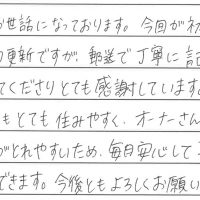 お世話になっております。今回が初
更新ですが、郵送で丁寧に記
てくださりとても感謝しています。
もとても住みやすく、オーナーさん
がとれやすいため、毎日安心して
できます。今後ともよろしくお願い